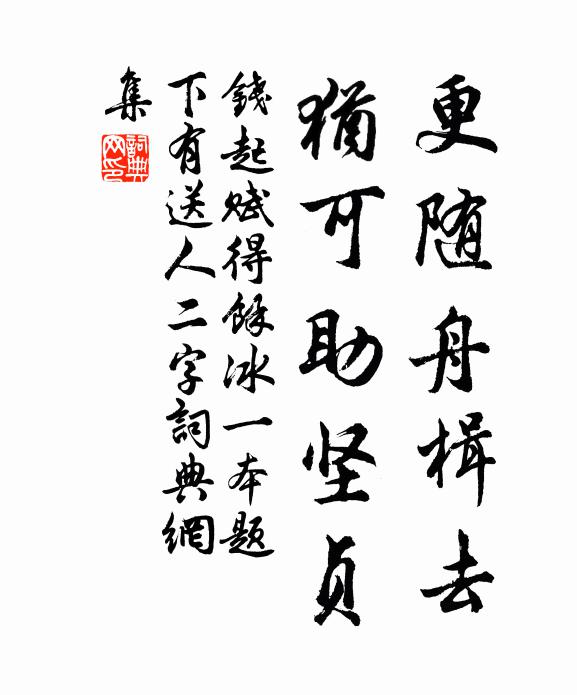 更随舟楫去
猶可助坚贞
錢起赋得餘冰一本题
下有送人二字詞典網
集
詞典网印